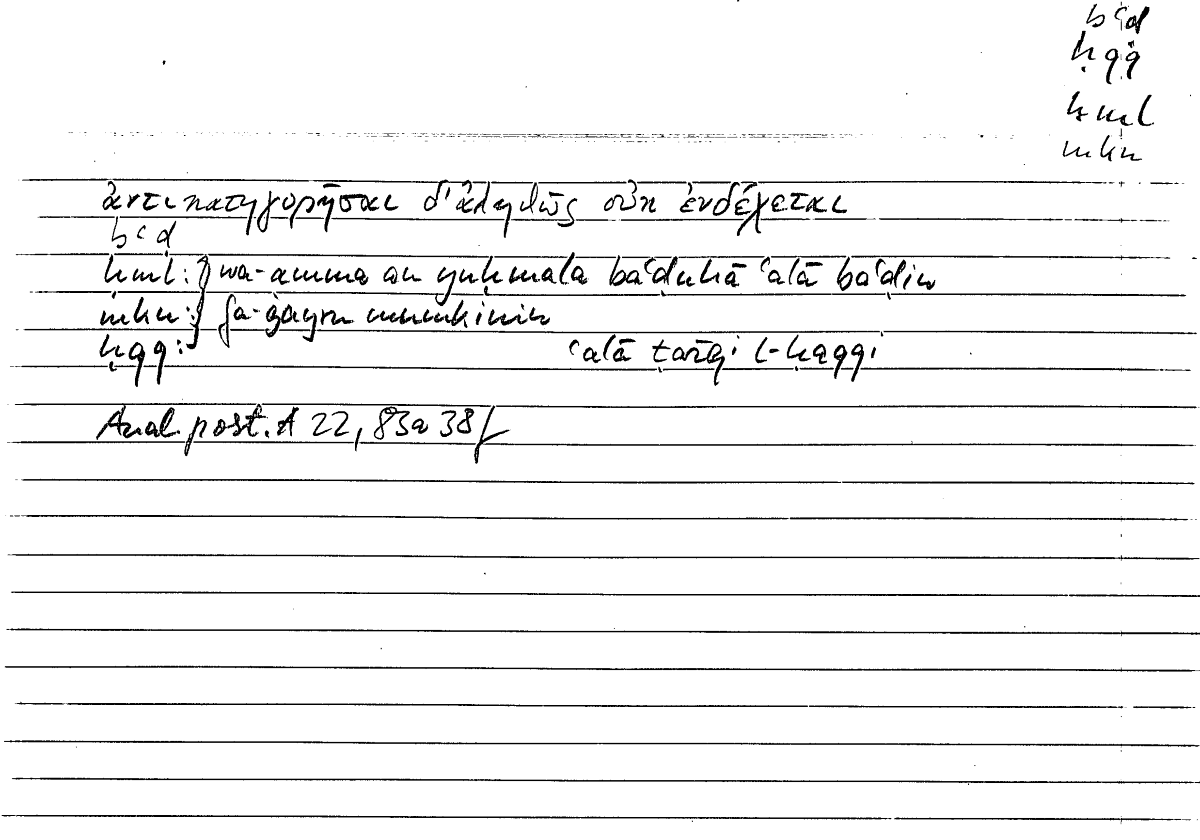 bʿḍ
ḥqq
ḥml
mkn
ἀντικατηγορῆσαι δ'ἀληθῶς οὐκ ἐνδέχεται
bʿḍ
ḥml: } wa-amma an yuḥmala baʿḍuhā ʿalā baʿḍin
mkn: } fa-ġayru mumkinin
ḥqq: } ʿalā ṭarīqi l-ḥaqqi
Anal. post. A 22, 83a 38f